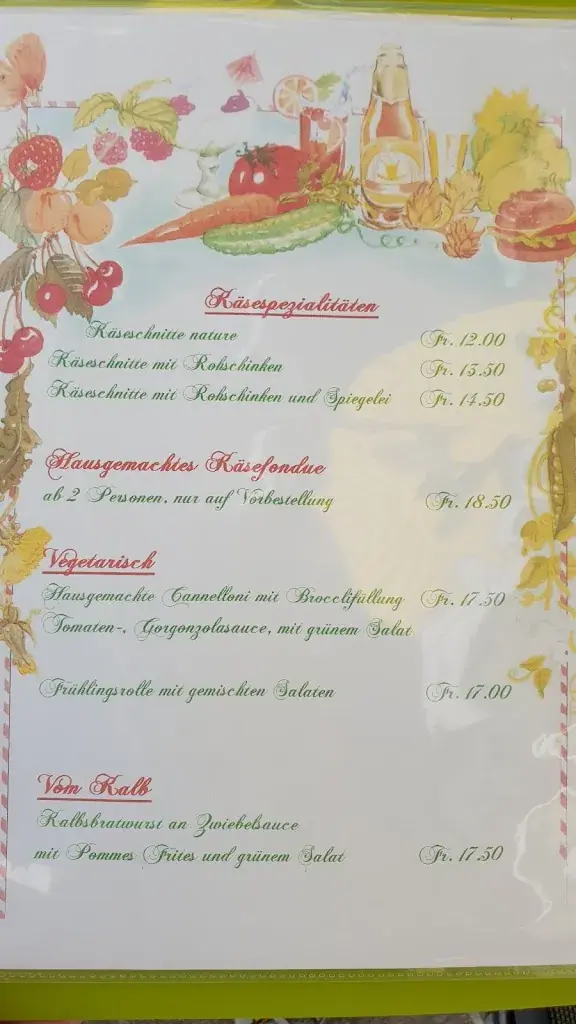 Käsespezialitäten
Käseschnitte nature Fr. 12.00
Käseschnitte mit Rohschinken Fr. 13.50
Käseschnitte mit Rohschinken und Spiegelei Fr. 14.50
Hausgemachtes Käsefondue
ab 2 Personen, nur auf Vorbestellung Fr. 18.50
Vegetarisch
Hausgemachte Cannelloni mit Brocclifüllung Fr. 17.50
Tomaten-, Gorgonzolasauce, mit grünem Salat
Frühlingsrolle mit gemischten Salaten Fr. 17.00
Vom Kalb
Kalbsbratwurst an Zwiebelsauce
mit Pommes Frites und grünem Salat Fr. 17.50